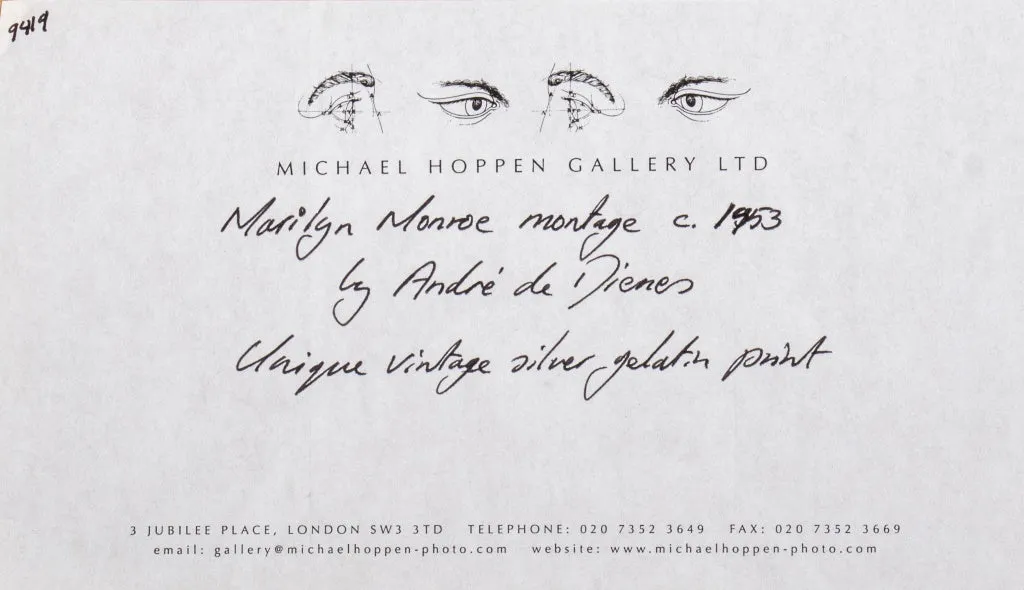 9419
MICHAEL HOPPEN GALLERY LTD
Marilyn Monroe montage c. 1953
by André de Dienes
Unique vintage silver gelatin print
3 JUBILEE PLACE, LONDON SW3 3TD TELEPHONE: 020 7352 3649 FAX: 020 7352 3669
email: gallery@michaelhoppen-photo.com website: www.michaelhoppen-photo.com